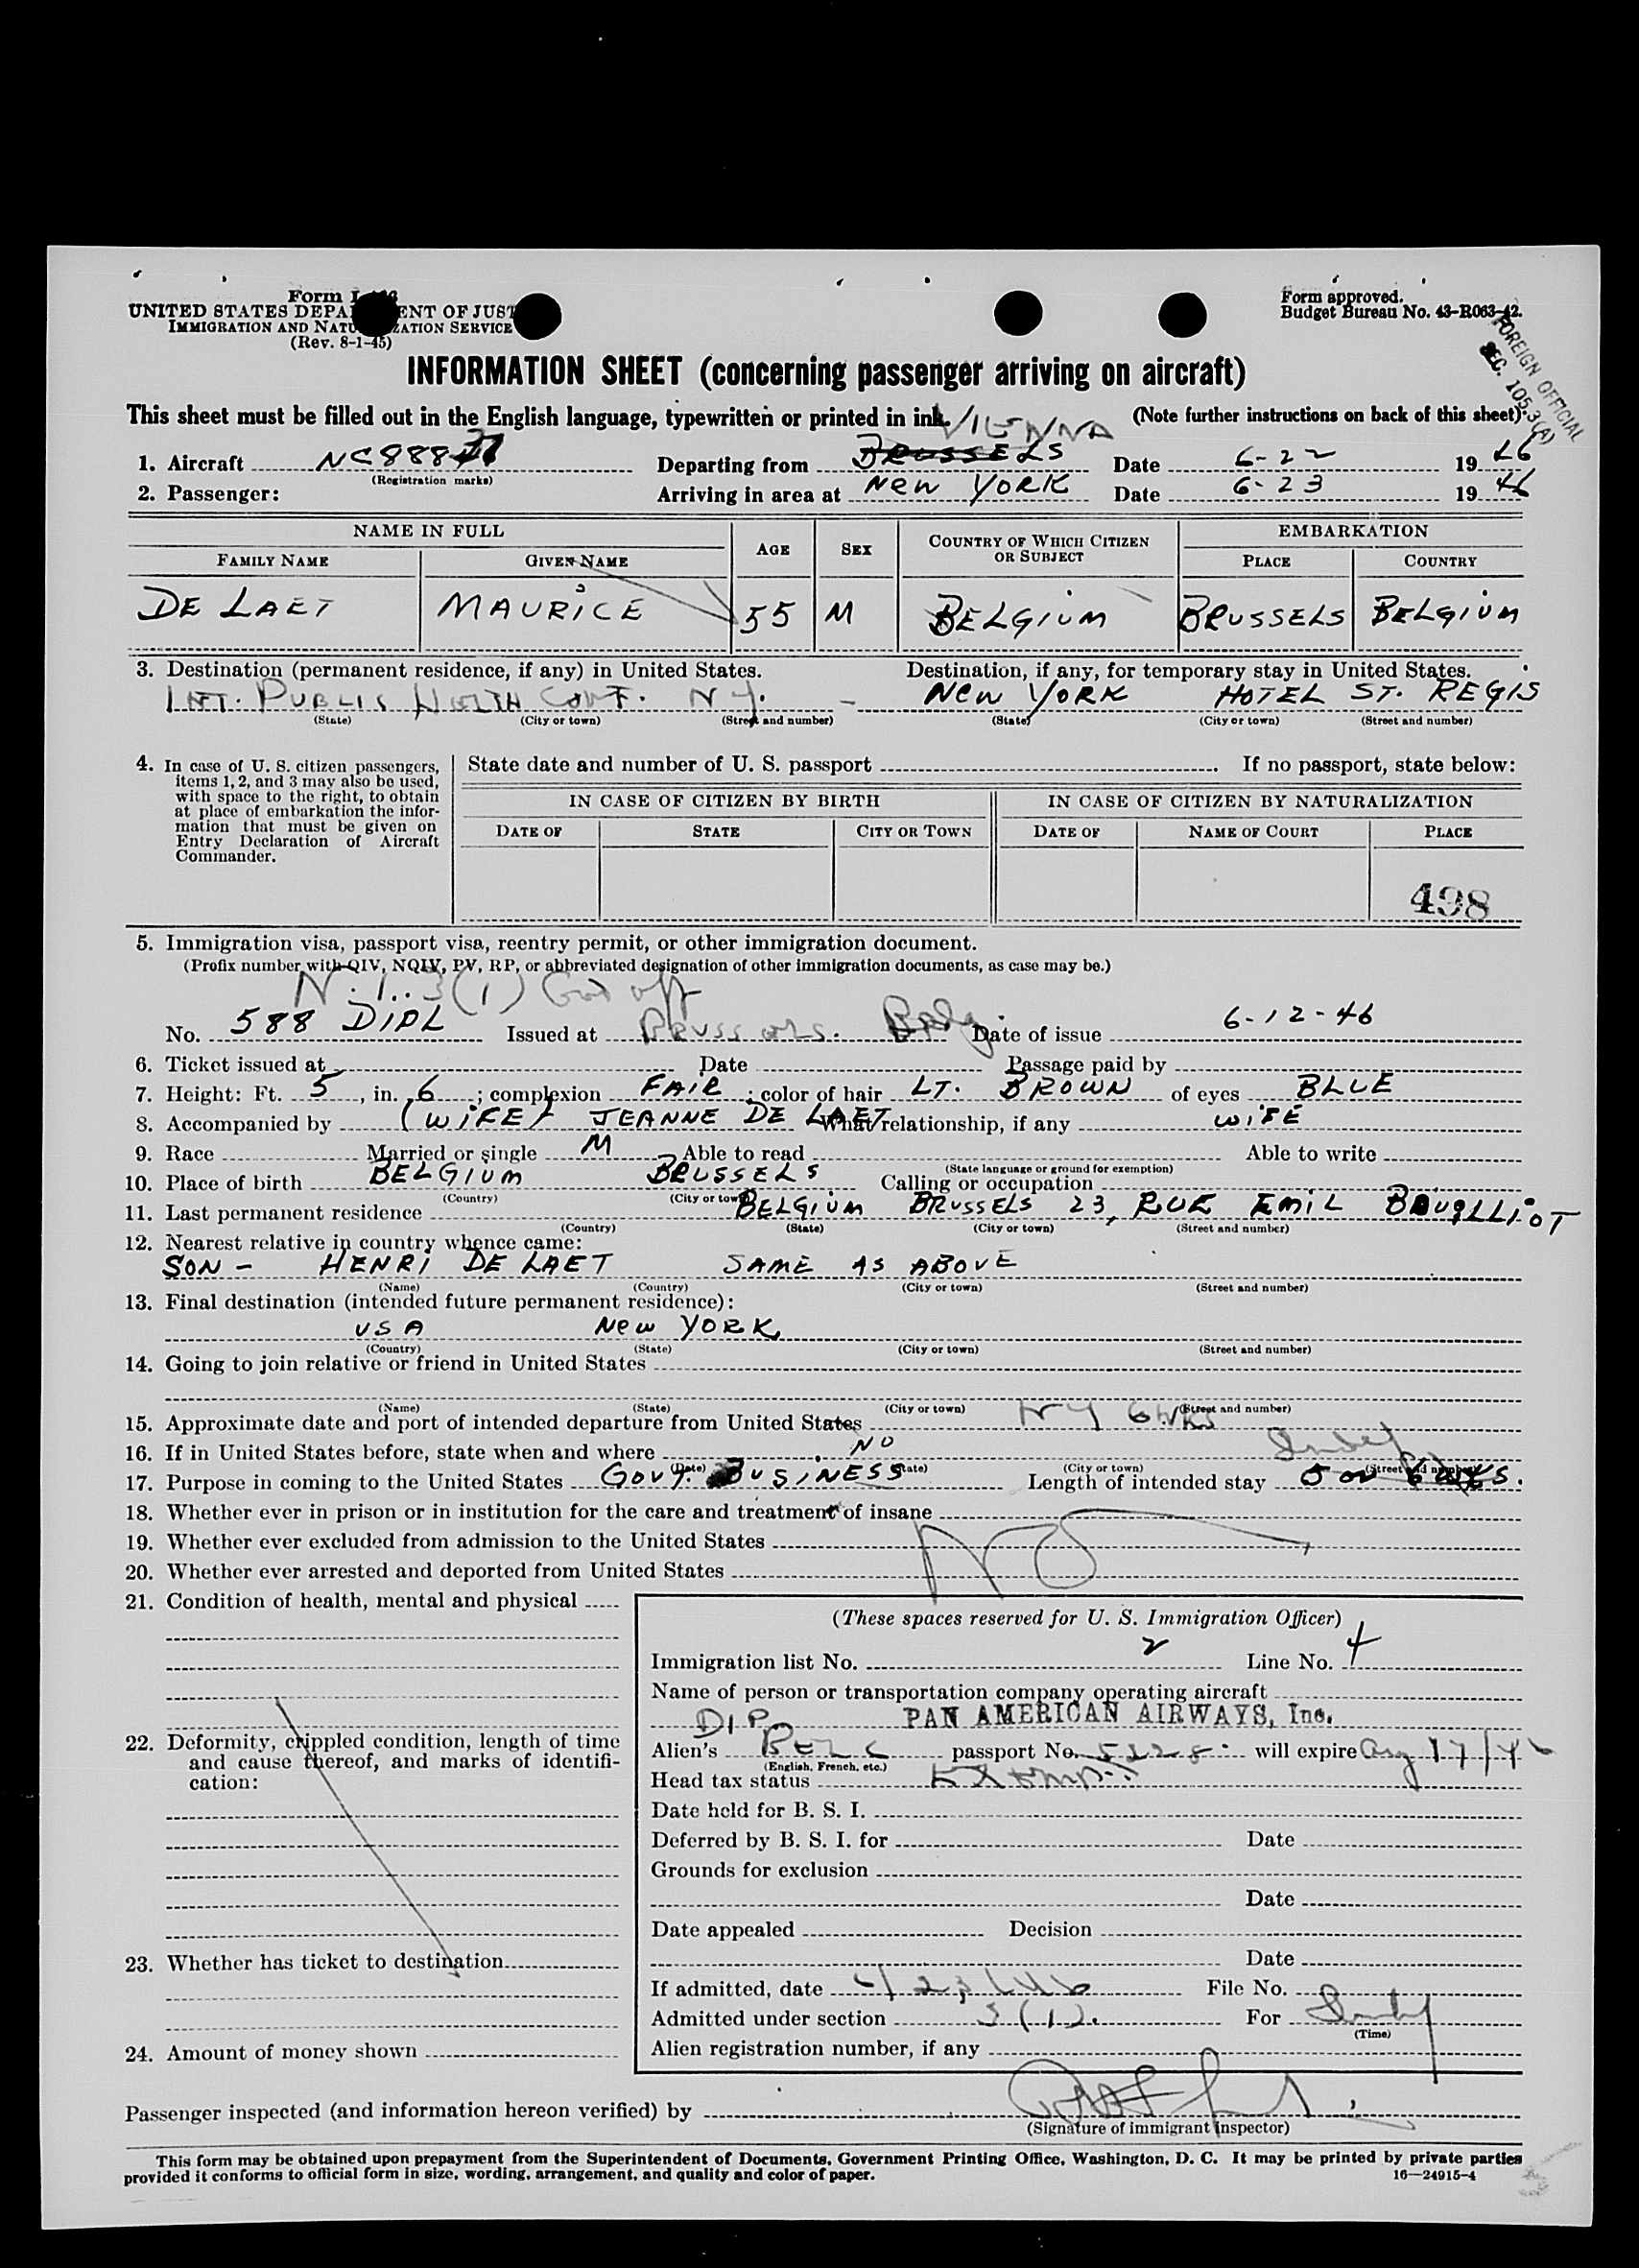 Form I-466
UNITED STATES DEPARTMENT OF JUSTICE
IMMIGRATION AND NATURALIZATION SERVICE
(Rev. 8-1-45)
Form approved.
Budget Bureau No. 43-R063-42.
FOREIGN OFFICIAL
SEC. 105.3(A)
INFORMATION SHEET (concerning passenger arriving on aircraft)
This sheet must be filled out in the English language, typewritten or printed in ink. (Note further instructions on back of this sheet).
VIENNA
1. Aircraft NC888 Departing from BRUSSELS Date 6-22 1946
(Registration marks)
2. Passenger: Arriving in area at NEW YORK Date 6-23 1946
NAME IN FULL AGE SEX COUNTRY OF WHICH CITIZEN OR SUBJECT EMBARKATION
FAMILY NAME GIVEN NAME PLACE COUNTRY
DE LAET MAURICE 55 M BELGIUM BRUSSELS BELGIUM
3. Destination (permanent residence, if any) in United States. Destination, if any, for temporary stay in United States.
INT. PUBLIC HEALTH CONF. N.Y. - NEW YORK HOTEL ST. REGIS
(State) (City or town) (Street and number) (State) (City or town) (Street and number)
4. In case of U. S. citizen passengers, items 1, 2, and 3 may also be used, with space to the right, to obtain at place of embarkation the information that must be given on Entry Declaration of Aircraft Commander.
State date and number of U. S. passport If no passport, state below:
IN CASE OF CITIZEN BY BIRTH IN CASE OF CITIZEN BY NATURALIZATION
DATE OF STATE CITY OR TOWN DATE OF NAME OF COURT PLACE
498
5. Immigration visa, passport visa, reentry permit, or other immigration document.
(Prefix number with QIV, NQIV, PV, RP, or abbreviated designation of other immigration documents, as case may be.)
3(1) off
No. 588 DIPL Issued at BRUSSELS. Belg Date of issue 6-12-46
6. Ticket issued at Date Passage paid by
7. Height: Ft. 5, in. 6; complexion FAIR; color of hair LT. BROWN of eyes BLUE
8. Accompanied by (WIFE) JEANNE DE LAET What relationship, if any WIFE
9. Race Married or single M Able to read Able to write
(State language or ground for exemption)
10. Place of birth BELGIUM BRUSSELS Calling or occupation
(Country) (City or town)
11. Last permanent residence BELGIUM BRUSSELS 23, RUE EMIL
(Country) (State) (City or town) (Street and number)
12. Nearest relative in country whence came:
SON - HENRI DE LAET SAME AS ABOVE
(Name) (Country) (City or town) (Street and number)
13. Final destination (intended future permanent residence):
USA NEW YORK
(Country) (State) (City or town) (Street and number)
14. Going to join relative or friend in United States
(Name) (State) (City or town) (Street and number)
15. Approximate date and port of intended departure from United States NY 6 WKS
16. If in United States before, state when and where NO
(Date) (State) (City or town) (Street and number)
17. Purpose in coming to the United States GOVT. BUSINESS Length of intended stay 5 or 6
18. Whether ever in prison or in institution for the care and treatment of insane
19. Whether ever excluded from admission to the United States NO
20. Whether ever arrested and deported from United States
21. Condition of health, mental and physical
22. Deformity, crippled condition, length of time and cause thereof, and marks of identification:
23. Whether has ticket to destination
24. Amount of money shown
(These spaces reserved for U. S. Immigration Officer)
Immigration list No. 2 Line No. 4
Name of person or transportation company operating aircraft
PAN AMERICAN AIRWAYS, Inc.
DIP
Alien's BELG passport No. 5228 will expire Aug 17/46
(English, French, etc.)
Head tax status Exempt
Date held for B. S. I.
Deferred by B. S. I. for Date
Grounds for exclusion
Date
Date appealed Decision
Date
If admitted, date 6/23/46 File No.
Admitted under section 3(1). For
(Time)
Alien registration number, if any
Passenger inspected (and information hereon verified) by
(Signature of immigrant inspector)
This form may be obtained upon prepayment from the Superintendent of Documents, Government Printing Office, Washington, D. C. It may be printed by private parties
provided it conforms to official form in size, wording, arrangement, and quality and color of paper. 16—24915-4